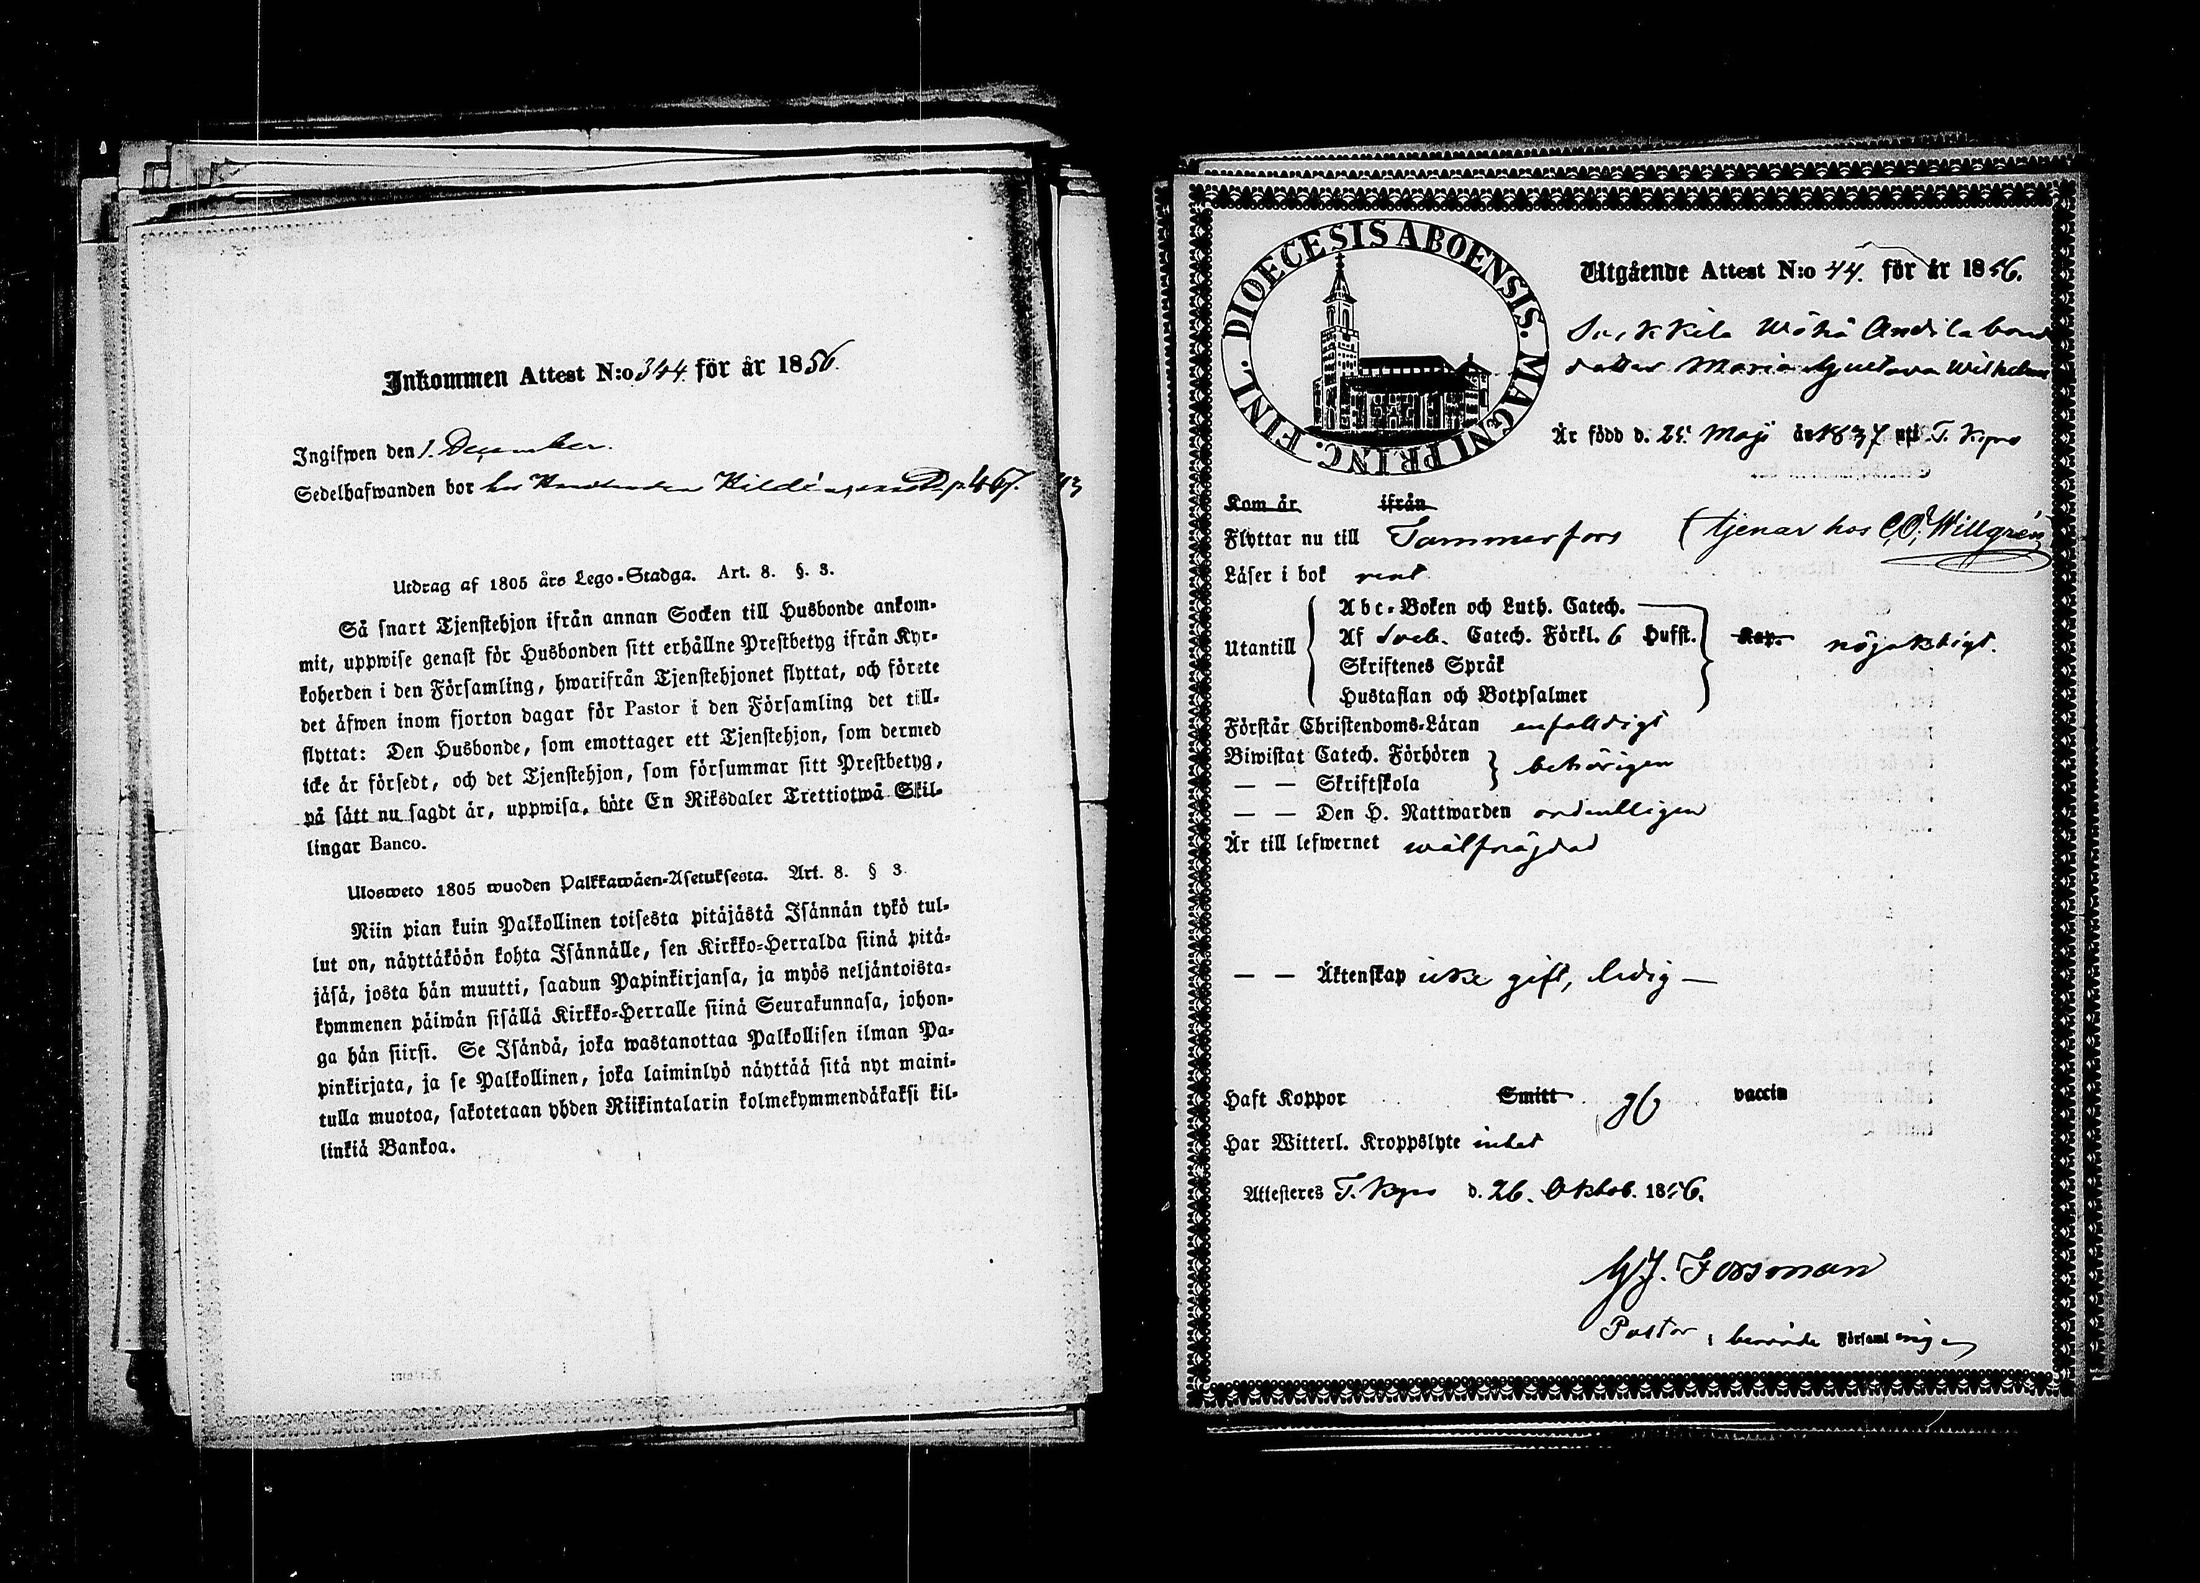 Inkommen Attest N:o 344. för år 1856.
Ingifwen den 1. December.
Sedelhafwanden bor hos p. 467.
Utdrag af 1805 års Lego-Stadga. Art. 8. §. 3.
Så snart Tjenstehjon ifrån annan Socken till Husbonde ankom-
mit, uppwise genast för Husbonden sitt erhållne Prestbetyg ifrån Kyr-
koherden i den Församling, hwarifrån Tjenstehjonet flyttat, och förete
det äfwen inom fjorton dagar för Pastor i den Församling det till-
flyttat: Den Husbonde, som emottager ett Tjenstehjon, som dermed
icke är försedt, och det Tjenstehjon, som försummar sitt Prestbetyg,
på sätt nu sagdt är, uppwisa, böte En Riksdaler Trettiotwå Skil-
lingar Banco.
Ulosweto 1805 wuoden Palkkawäen-Asetuksesta. Art. 8. § 3.
Niin pian kuin Palkollinen toisesta pitäjästä Isännän tykö tul-
lut on, näyttäköön kohta Isännälle, sen Kirkko-Herralda siinä pitä-
jäsä, josta hän muutti, saadun Papinkirjansa, ja myös neljäntoista-
kymmenen päiwän sisällä Kirkko-Herralle siinä Seurakunnasa, johon-
ga hän siirsi. Se Isändä, joka wastanottaa Palkollisen ilman Pa-
pinkirjata, ja se Palkollinen, joka laiminlyö näyttää sitä nyt maini-
tulla muotoa, sakotetaan yhden Riikintalarin kolmekymmendäkaksi kil-
linkiä Bankoa.
DIOECESIS ABOENSIS. MAGNI PRINC. FINL.
Utgående Attest N:o 44. för år 1856.
Wähä Andila bond
dotter Maria Gustava Wilhelmina
Är född d. 25 Maji år 1837 uti T. Kyro
Kom år ifrån
Flyttar nu till Tammerfors (tjenar hos C.O. Willgrén
Läser i bok rent
Utantill
Abc-Boken och Luth. Catech.
Af Sveb. Catech. Förkl. 6 Hufst.
Skriftenes Språk
Hustaflan och Botpsalmer
Kap. nöjaktigt.
Förstår Christendoms-Läran enfalldigt
Biwistat Catech. Förhören
— — Skriftskola
behörigen
— — Den H. Nattwarden ordentligen
Är till lefwernet wälfrägdad
— — Äktenskap icke gift, ledig —
Haft Koppor Smitt vaccin
Har Witterl. Kroppslyte intet
Attesteres T. Kyro d. 26. Oktob. 1856.
G J. Forsman
Pastor i berörde Församlingen